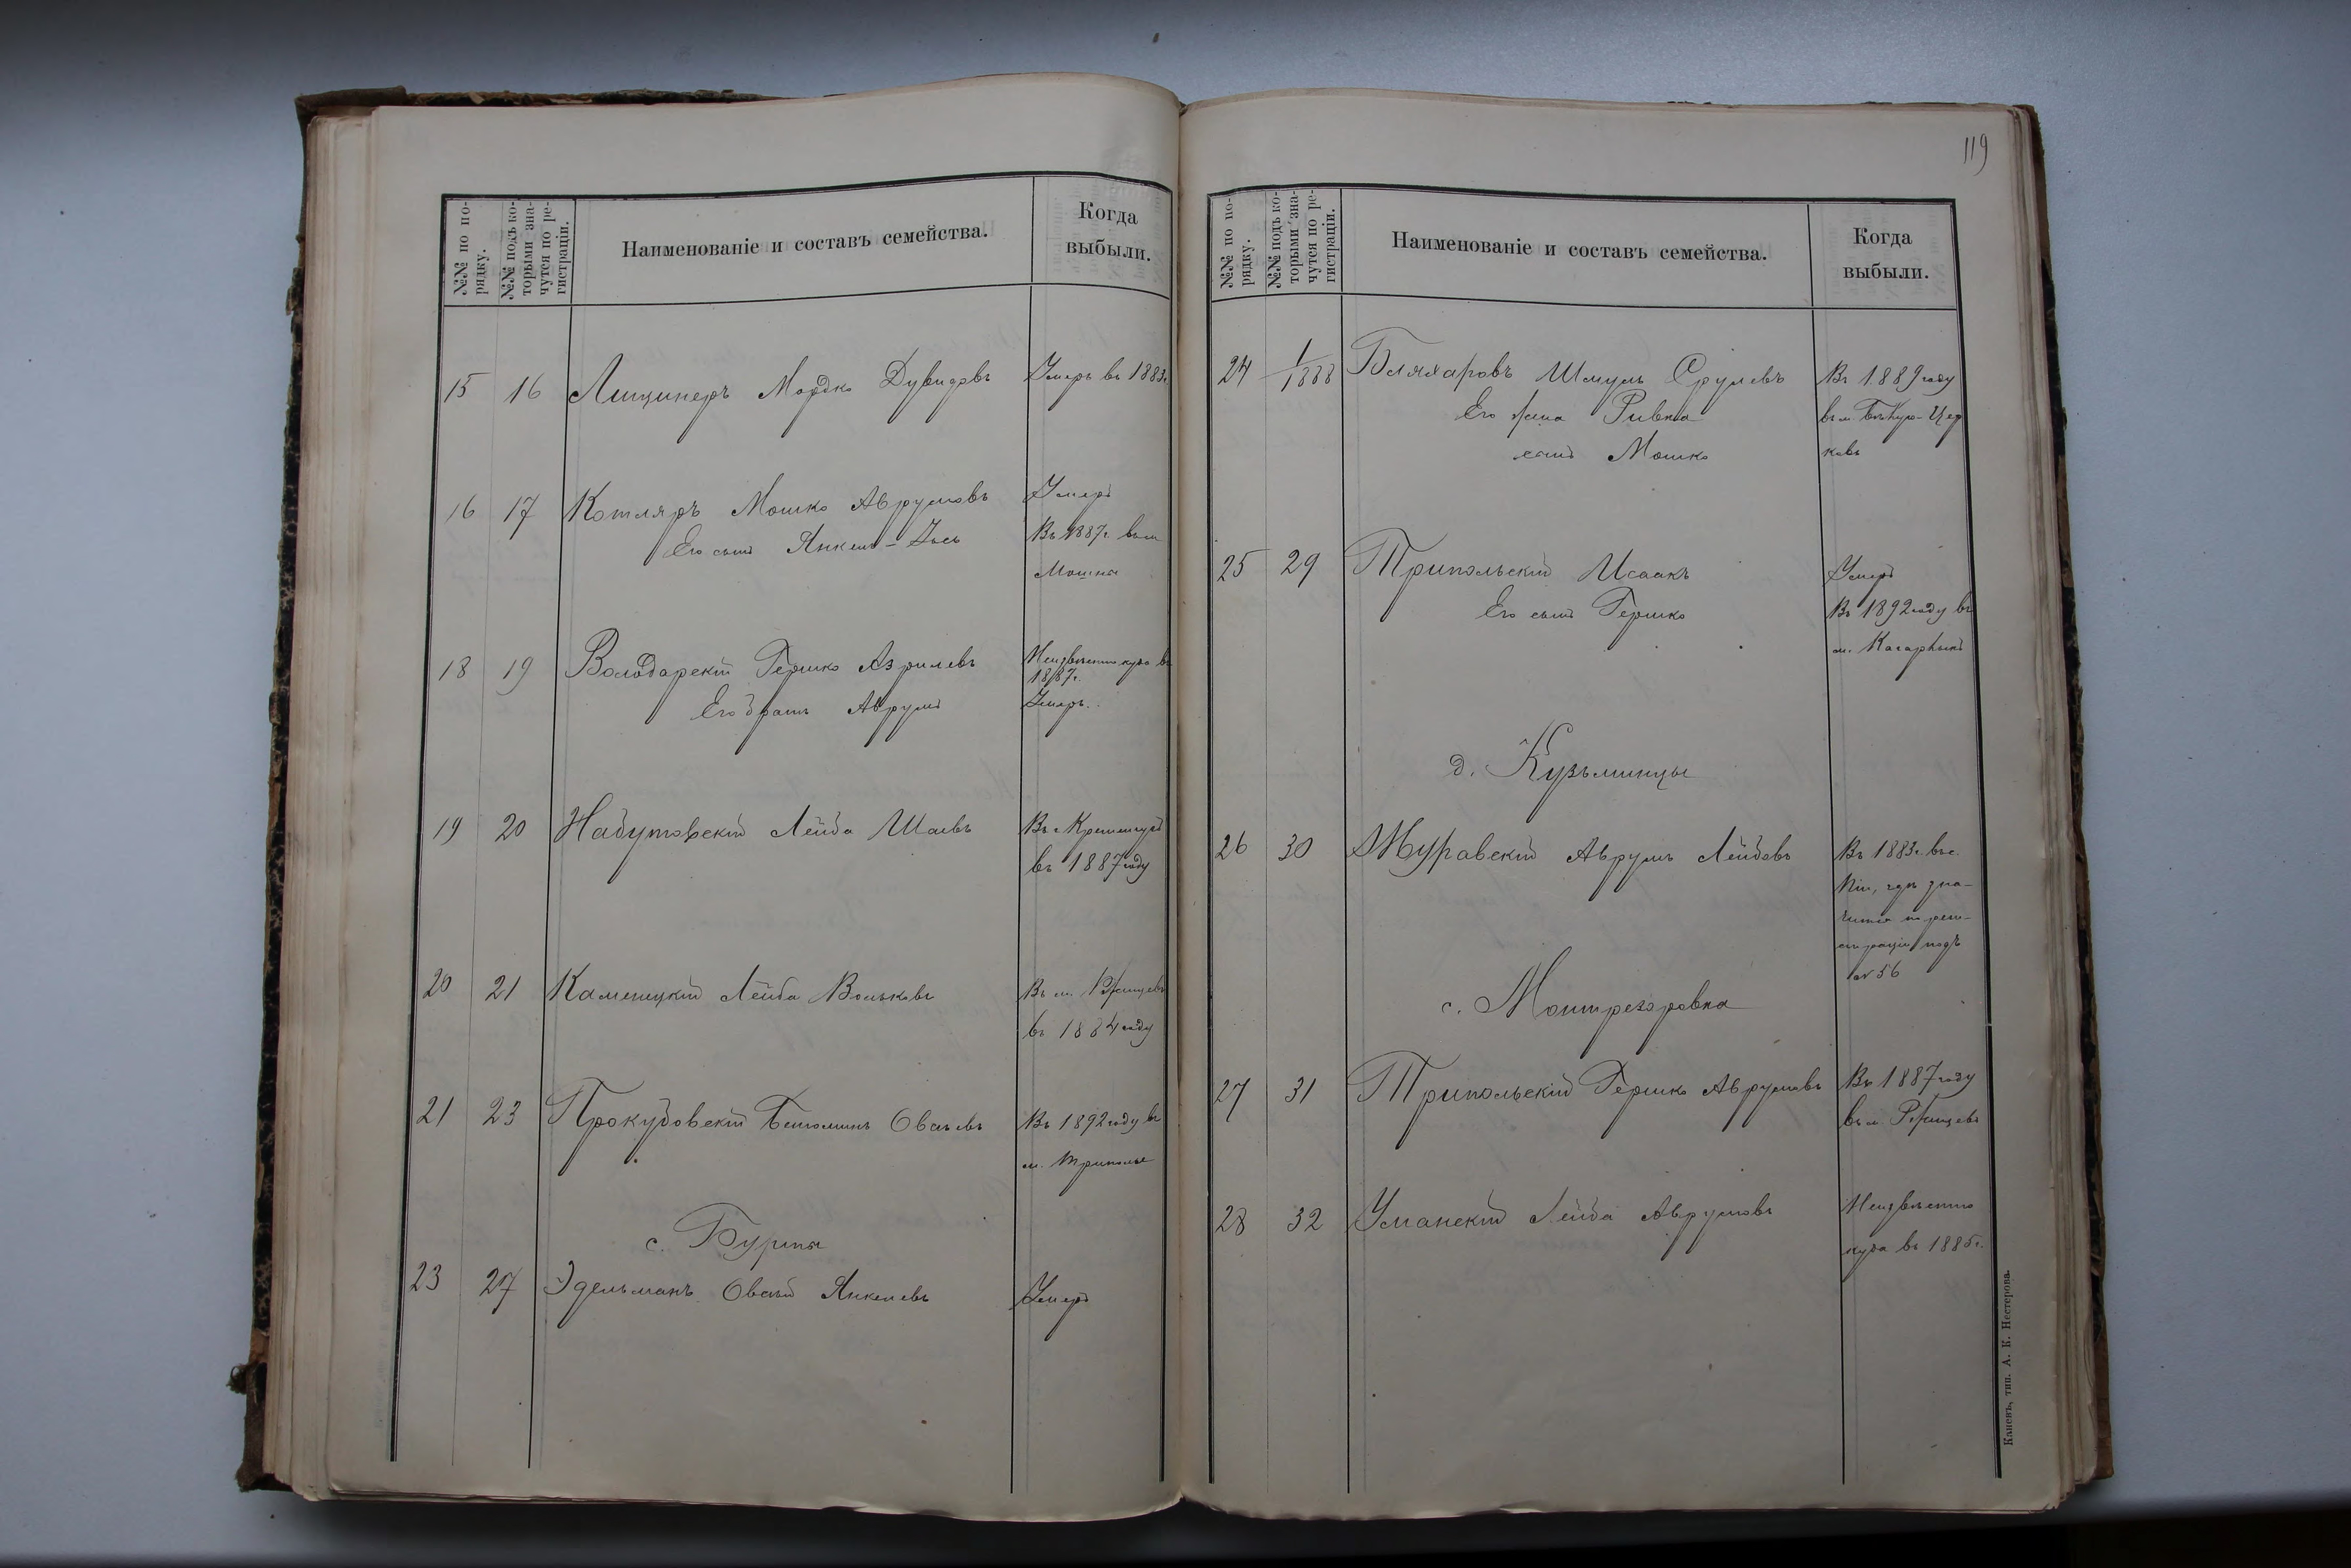 №№ по по-
рядку.
№№ подъ ко-
торыми зна-
чутся по ре-
гистраціи.
Наименованіе и составъ семейства.
Когда
выбыли.
15 16 Лищинеръ Мордко Дувидовъ Умеръ въ 1883г.
16 17 Котляръ Мошко Аврумовъ Умеръ
Его сынъ Янкель-Зусь Въ 1887г. въ м.
Мошна
18 19 Володарскій Гершко Азрилевъ Неизвѣстно куда въ
1887г.
Его братъ Аврумъ Умеръ.
19 20 Набутовскій Лейба Шаевъ Въ г. Кременчугъ
въ 1887 году
20 21 Каменецкій Лейба Вольковъ Въ м. Ржищевъ
въ 1884 году
21 23 Прокудовскій Беньоминъ Овсѣевъ Въ 1892 году въ
м. Триполье
с. Бурты
23 27 Эдельманъ Овсѣй Янкелевъ Умеръ
119
№№ по по-
рядку.
№№ подъ ко-
торыми зна-
чутся по ре-
гистраціи.
Наименованіе и составъ семейства.
Когда
выбыли.
24 1/1888 Бляхаровъ Шмуль Срулевъ Въ 1889 году
Его жена Ривка въ м. Бѣлую-Цер
сынъ Мошко ковь
25 29 Трипольскій Исаакъ Умеръ
Его сынъ Гершко Въ 1892 году въ
м. Кагарлыкъ
д. Кузьминцы
26 30 Журавскій Аврумъ Лейбовъ Въ 1883г. въ с.
гдѣ зна-
чится по реги-
страціи подъ
№ 56
с. Монтрезоровка
27 31 Трипольскій Гершко Аврумовъ Въ 1887 году
въ м. Ржищевъ
28 32 Уманскій Лейба Аврумовъ Неизвѣстно
куда въ 1885г.
Каневъ, тип. А. К. Нестерова.